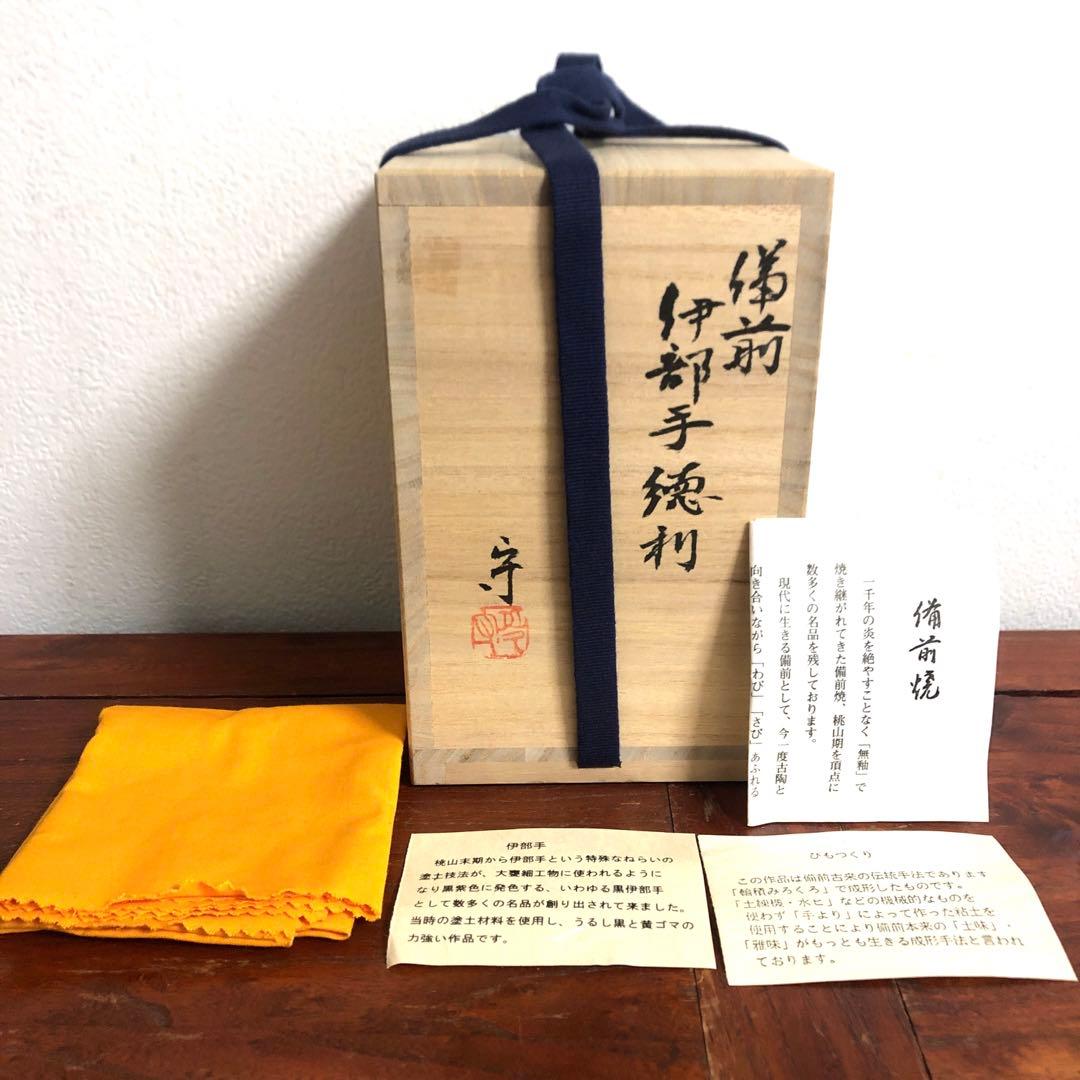 備前
伊部手徳利
守
備前焼
一千年の炎を絶やすことなく「無釉」で
焼き継がれてきた備前焼、桃山期を頂点に
数多くの名品を残しております。
現代に生きる備前として、今一度古陶と
向き合いながら「わび」「さび」あふれる
伊部手
桃山末期から伊部手という特殊なねらいの
塗土技法が、大甕細工物に使われるように
なり黒紫色に発色する、いわゆる黒伊部手
として数多くの名品が創り出されて来ました。
当時の塗土材料を使用し、うるし黒と黄ゴマの
力強い作品です。
ひもつくり
この作品は備前古来の伝統手法であります
「輪積みろくろ」で成形したものです。
「土練機・水ヒ」などの機械的なものを
使わず「手より」によって作った粘土を
使用することにより備前本来の「土味」・
「雅味」がもっとも生きる成形手法と言われ
ております。